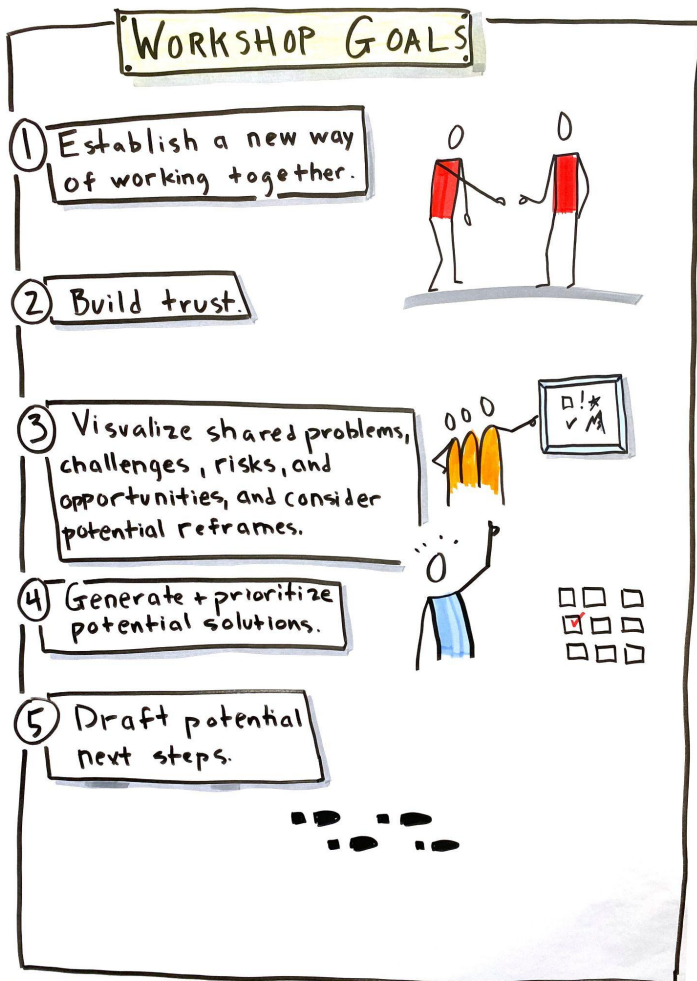 WORKSHOP GOALS
1 Establish a new way
of working together.
2 Build trust.
3 Visualize shared problems,
challenges, risks, and
opportunities, and consider
potential reframes.
4 Generate + prioritize
potential solutions.
5 Draft potential
next steps.